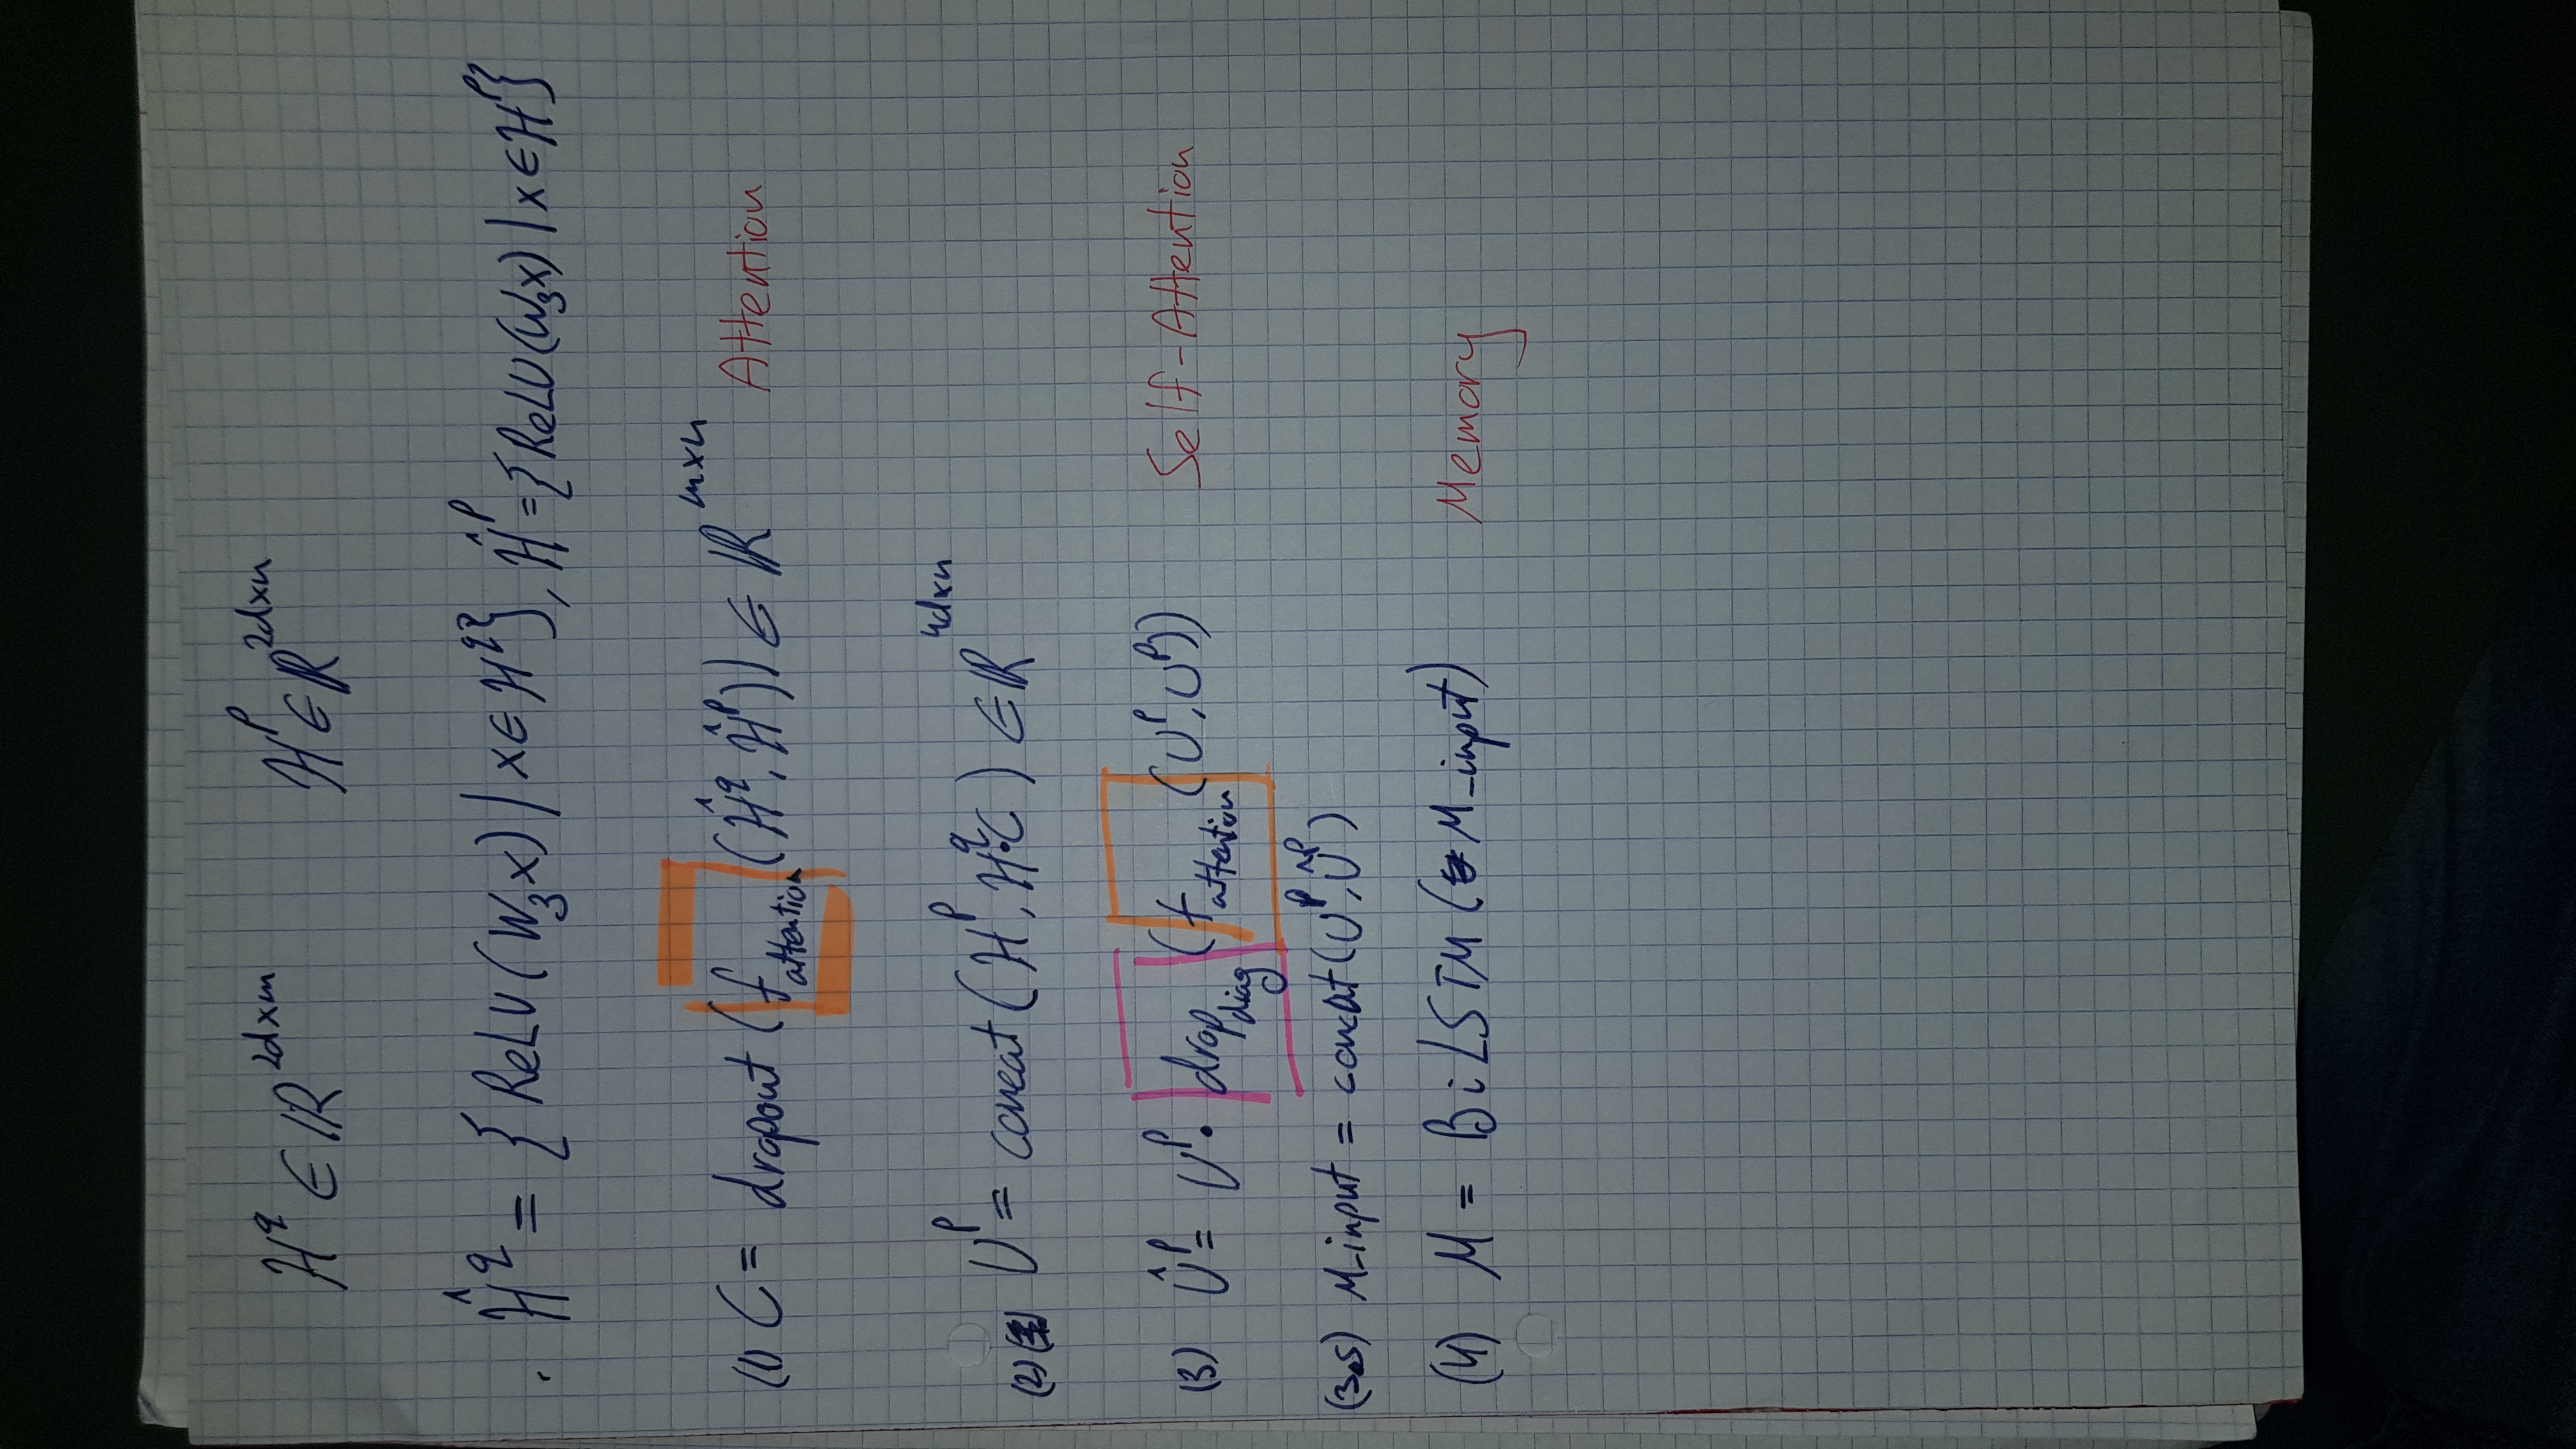 H^q ∈ ℝ^{2d×m} H^p ∈ ℝ^{2d×n}
. Ĥ^q = { ReLU(W_3x) | x ∈ H^q }, Ĥ^p = {ReLU(W_3x) | x ∈ H^p}
(1) C = dropout (f_attention (Ĥ^q, Ĥ^p)) ∈ ℝ^{m×n} Attention
(2) U^p = concat (H^p, H^q·C) ∈ ℝ^{4d×n}
(3) Û^p = U^p · drop_diag (f_attention (U^p, U^p)) Self-Attention
(3.5) M_input = concat (U^p, Û^p)
(4) M = BiLSTM (M_input) Memory